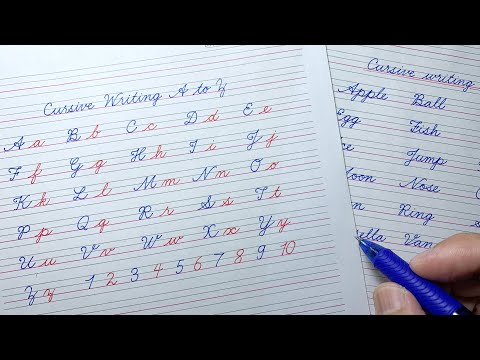 Cursive Writing A to Z
A a B b C c D d E e
F f G g H h I i J j
K k L l M m N n O o
P p Q q R r S s T t
U u V v W w X x Y y
Z z 1 2 3 4 5 6 7 8 9 10
Cursive writing
Apple Ball
Egg Fish
Jump
Nose
Ring
Van